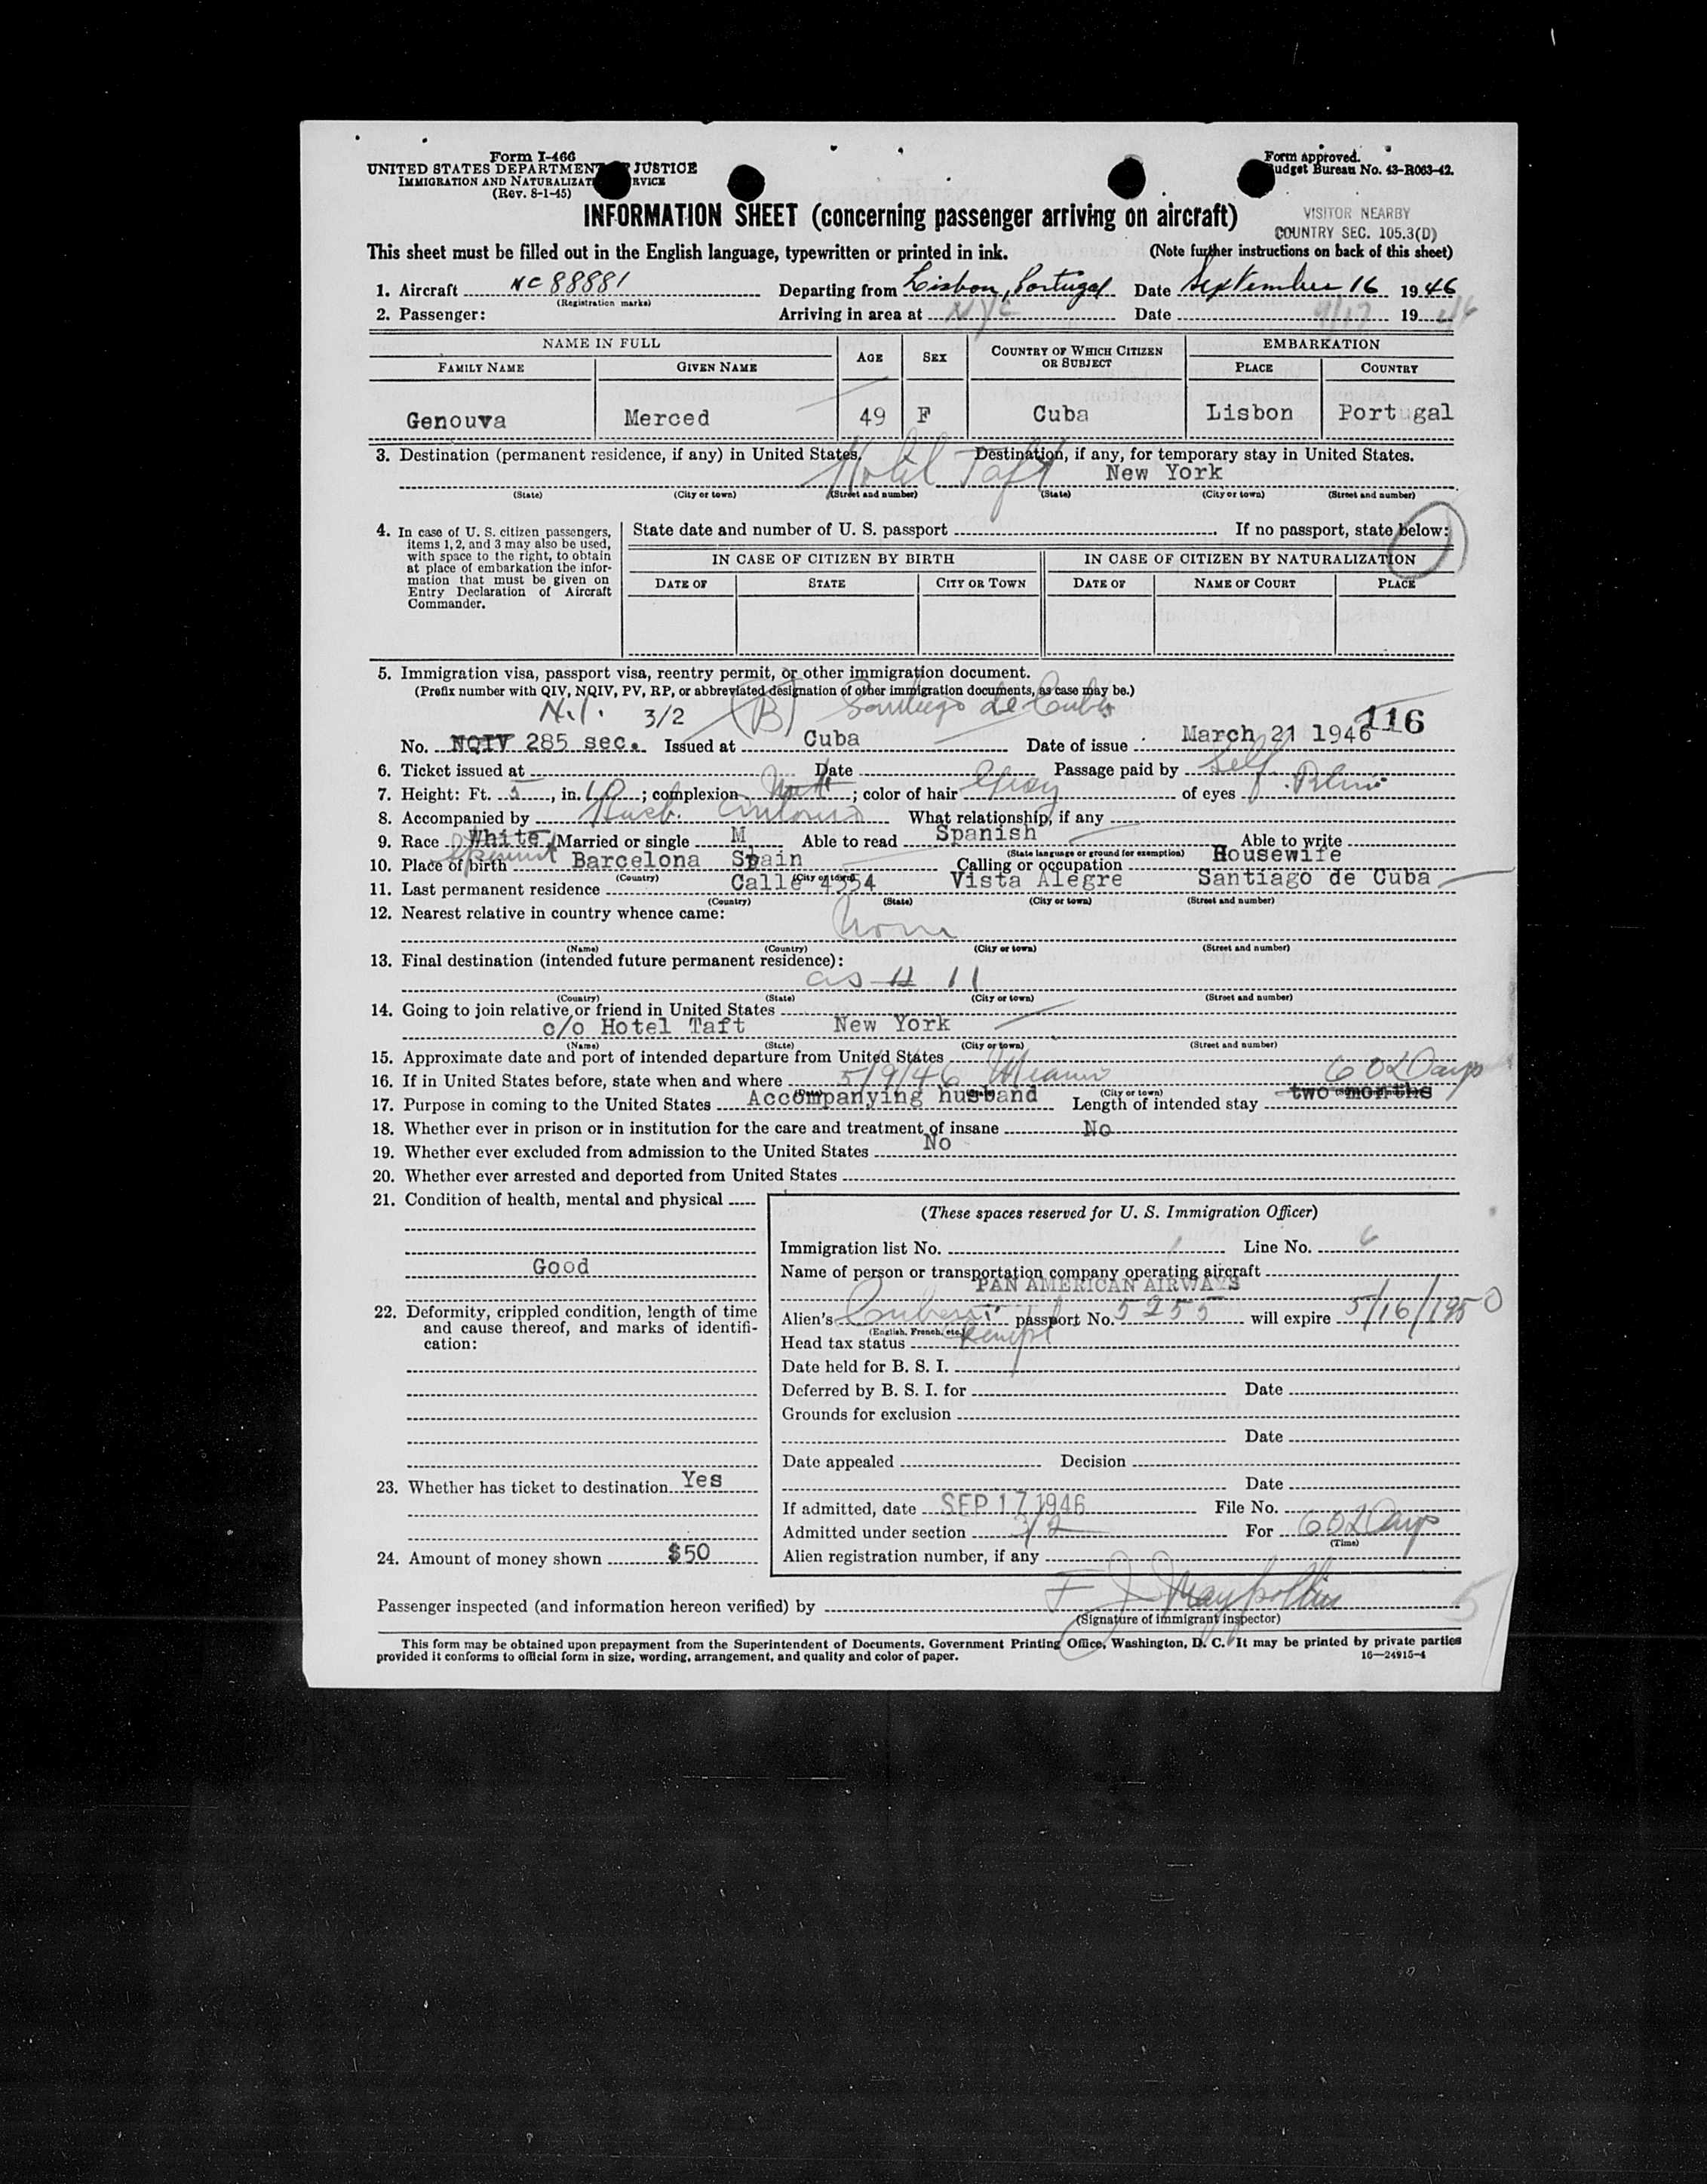 Form I-466
UNITED STATES DEPARTMENT JUSTICE
IMMIGRATION AND NATURALIZAT RVICE
(Rev. 8-1-45)
Form approved.
udget Bureau No. 43-R063-42.
INFORMATION SHEET (concerning passenger arriving on aircraft)
VISITOR NEARBY
COUNTRY SEC. 105.3(D)
This sheet must be filled out in the English language, typewritten or printed in ink. (Note further instructions on back of this sheet)
1. Aircraft NC 88881 Departing from Lisbon, Portugal Date September 16 1946
(Registration marks)
2. Passenger: Arriving in area at NYC Date 9/17 1946
NAME IN FULL AGE SEX COUNTRY OF WHICH CITIZEN OR SUBJECT EMBARKATION
FAMILY NAME GIVEN NAME PLACE COUNTRY
Genouva Merced 49 F Cuba Lisbon Portugal
3. Destination (permanent residence, if any) in United States. Destination, if any, for temporary stay in United States.
Hotel Taft New York
(State) (City or town) (Street and number) (State) (City or town) (Street and number)
4. In case of U. S. citizen passengers, items 1, 2, and 3 may also be used, with space to the right, to obtain at place of embarkation the information that must be given on Entry Declaration of Aircraft Commander.
State date and number of U. S. passport . If no passport, state below:
IN CASE OF CITIZEN BY BIRTH IN CASE OF CITIZEN BY NATURALIZATION
DATE OF STATE CITY OR TOWN DATE OF NAME OF COURT PLACE
5. Immigration visa, passport visa, reentry permit, or other immigration document.
(Prefix number with QIV, NQIV, PV, RP, or abbreviated designation of other immigration documents, as case may be.)
N.I. 3/2 (B) Santiago de Cuba 116
No. NQIV 285 sec. Issued at Cuba Date of issue March 21 1946
6. Ticket issued at Date Passage paid by Self
7. Height: Ft. 5, in. ; complexion ; color of hair Gray of eyes
8. Accompanied by Husb. Antonio What relationship, if any
9. Race White Married or single M Able to read Spanish Able to write
(State language or ground for exemption)
10. Place of birth Barcelona Spain Calling or occupation Housewife
(Country) (City or town)
11. Last permanent residence Calle 4554 Vista Alegre Santiago de Cuba
(Country) (State) (City or town) (Street and number)
12. Nearest relative in country whence came:
None
(Name) (Country) (City or town) (Street and number)
13. Final destination (intended future permanent residence):
as 11
(Country) (State) (City or town) (Street and number)
14. Going to join relative or friend in United States
c/o Hotel Taft New York
(Name) (State) (City or town) (Street and number)
15. Approximate date and port of intended departure from United States
16. If in United States before, state when and where 5/9/46 Miami 60 Days
(City or town)
17. Purpose in coming to the United States Accompanying husband Length of intended stay two months
18. Whether ever in prison or in institution for the care and treatment of insane No
19. Whether ever excluded from admission to the United States No
20. Whether ever arrested and deported from United States
21. Condition of health, mental and physical
Good
22. Deformity, crippled condition, length of time and cause thereof, and marks of identification:
23. Whether has ticket to destination Yes
24. Amount of money shown $50
(These spaces reserved for U. S. Immigration Officer)
Immigration list No. 1 Line No. 6
Name of person or transportation company operating aircraft
PAN AMERICAN AIRWAYS
Alien's Cuban passport No. 5255 will expire 5/16/1950
(English, French, etc.)
Head tax status Exempt
Date held for B. S. I.
Deferred by B. S. I. for Date
Grounds for exclusion
Date
Date appealed Decision
Date
If admitted, date SEP 17 1946 File No.
Admitted under section 3/2 For 60 Days
(Time)
Alien registration number, if any
Passenger inspected (and information hereon verified) by
(Signature of immigrant inspector)
This form may be obtained upon prepayment from the Superintendent of Documents, Government Printing Office, Washington, D. C. It may be printed by private parties
provided it conforms to official form in size, wording, arrangement, and quality and color of paper.
16—24915-4